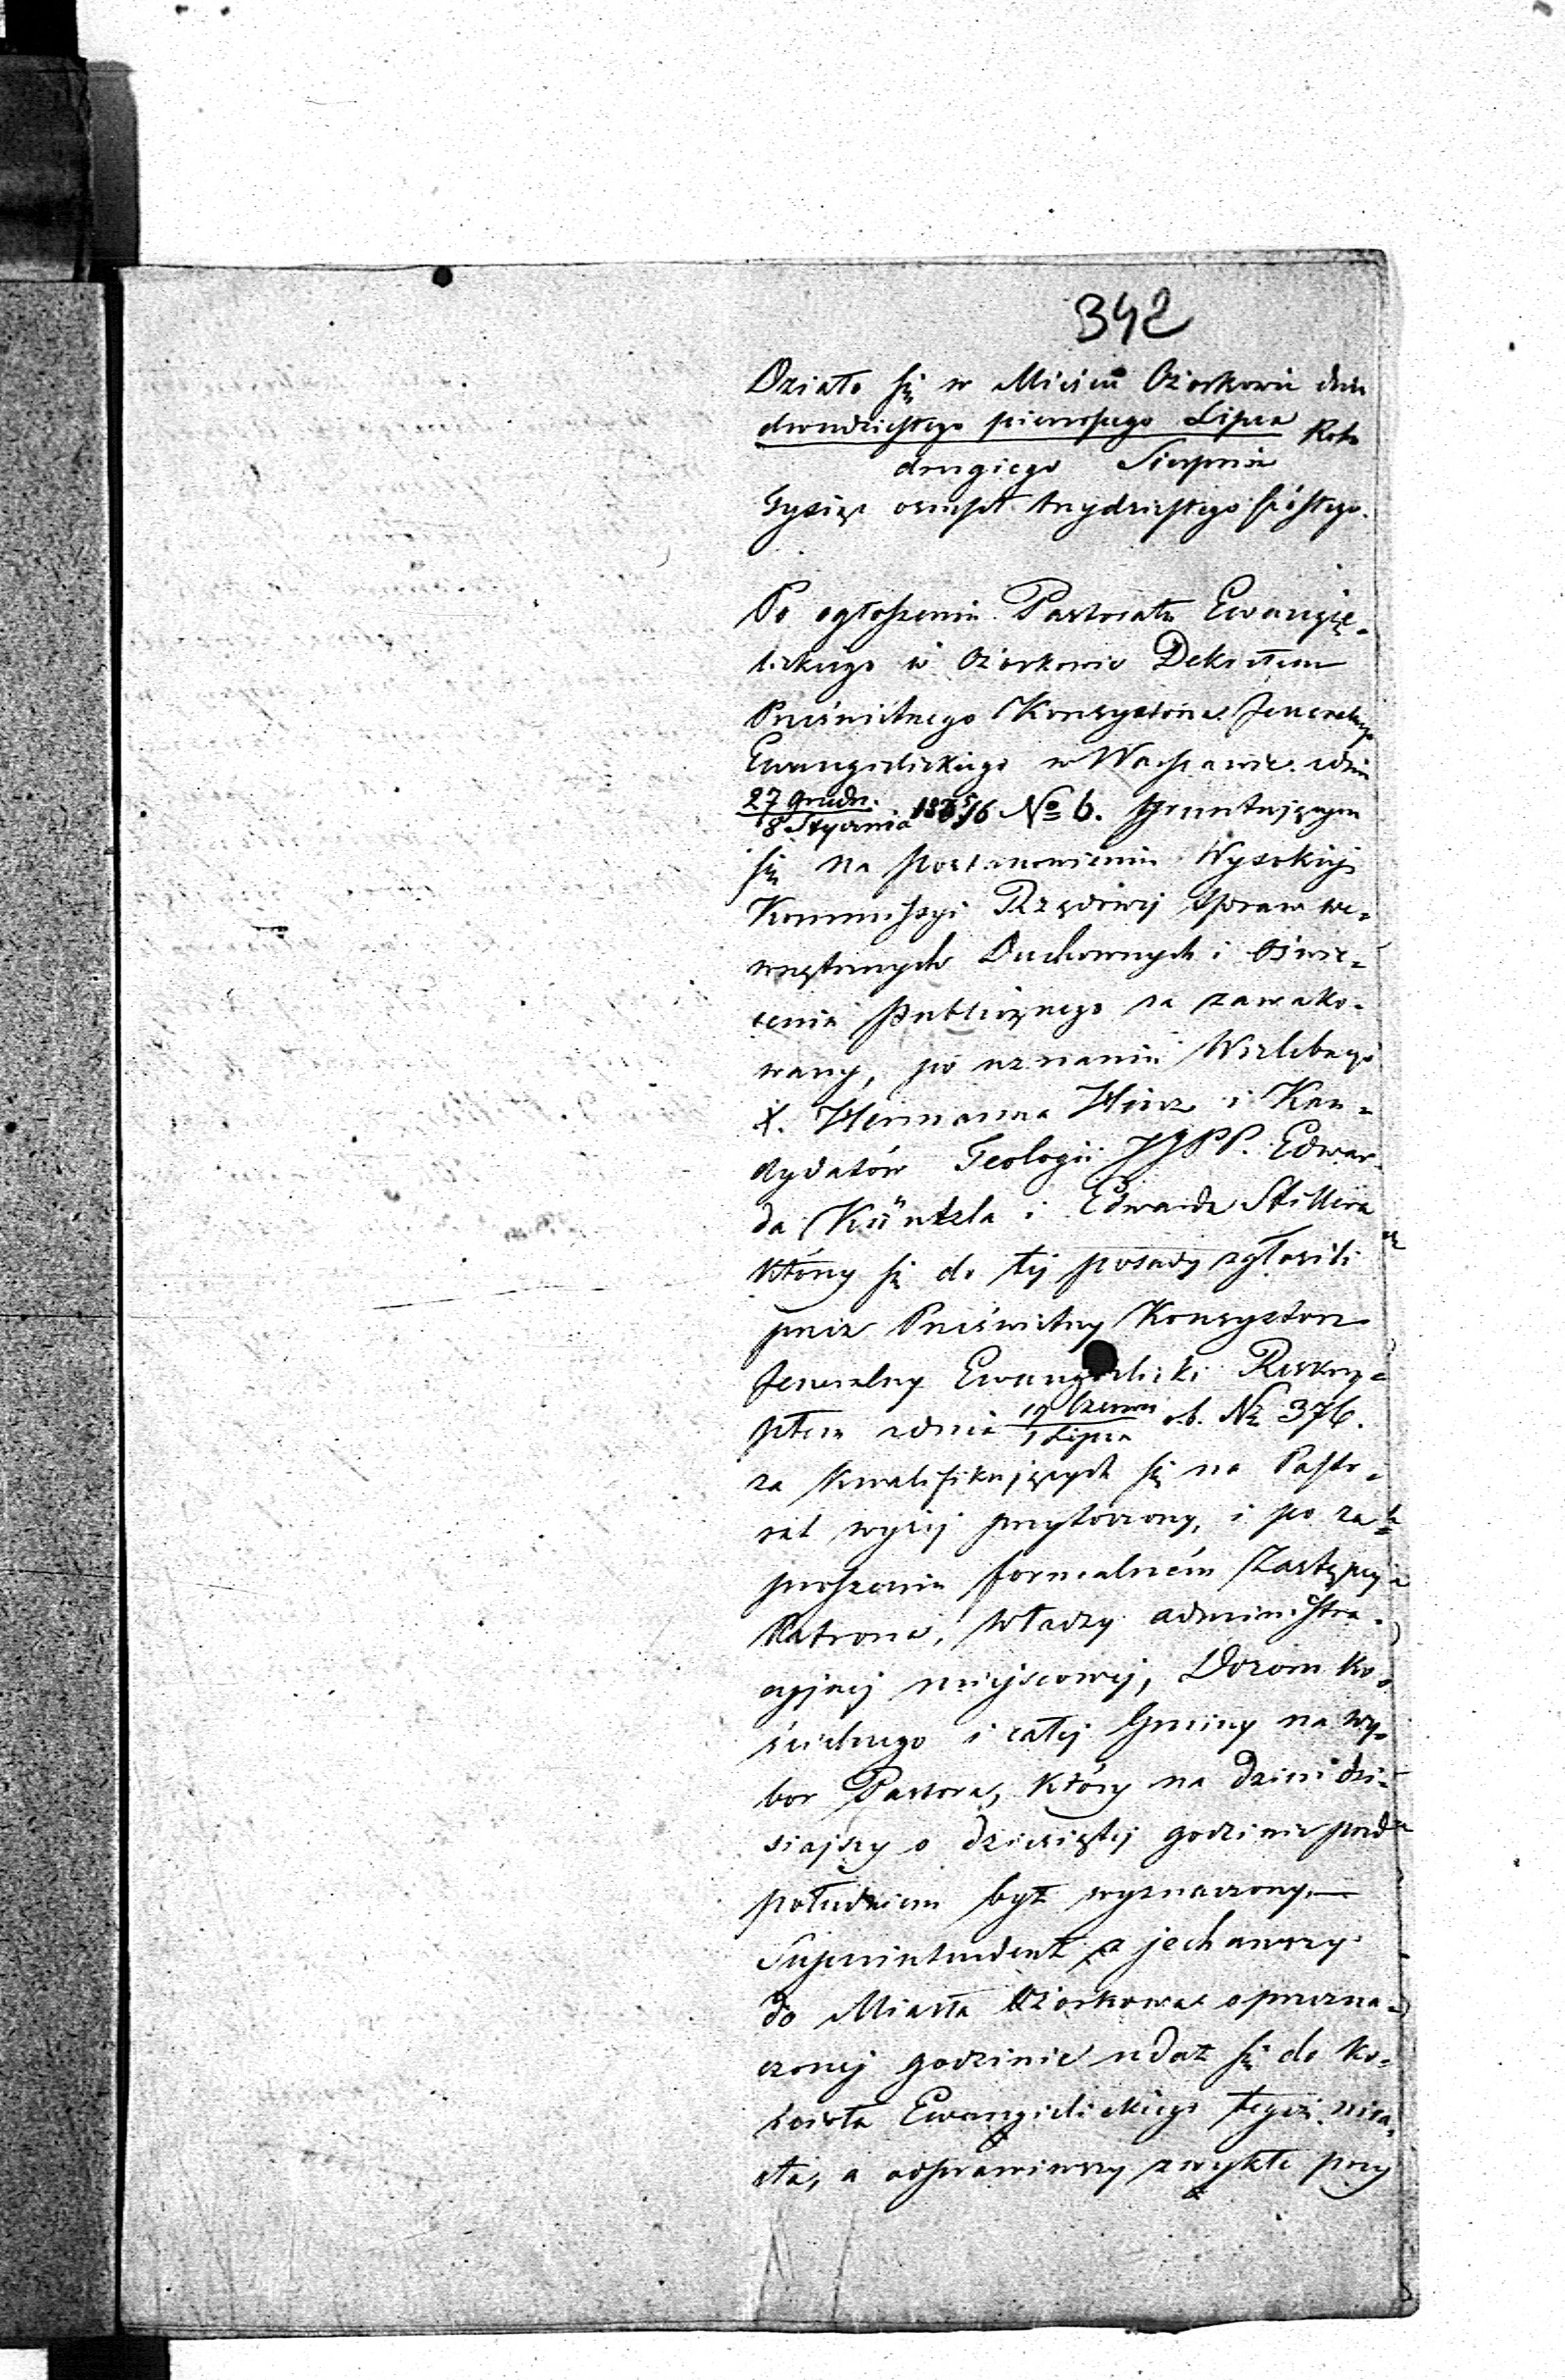 342
Działo się w Mieście Ozorkowie dnia
dwudziestego pierwszego Lipca Roku
drugiego Sierpnia
Tysiąc osmset trzydziestego szóstego.
Po ogłoszeniu Pastoratu Ewangie-
lickiego w Ozorkowie Dekretem
Prześwietnego Konsystorza Jeneralnego
Ewangielickiego w Warszawie z dnia
27 Grudn.
8 Stycznia 1835/6 No 6. gruntującym
się na postanowieniu Wysokiej
Kommissyi Rządowej Spraw We-
wnętrznych Duchownych i Oświe-
cenia Publicznego za zawako-
wany, po uznaniu Wielebnego
X. Hermanna i Kan-
dydatów Teologii JJPP. Edwar-
da Küntzla i Edwarda Stillera
którzy się do tej posady zgłosili
przez Prześwietny Konsystorz
Jeneralny Ewangielicki Reskry-
ptem z dnia 19 Czerwca
1 Lipca r.b. No 376.
za kwalifikujących się na Pasto-
rat wyżej przytoczony, i po za-
proszeniu formalném Zastępcy
Patrona, Władzy administra-
cyjnej miejscowej, Dozoru Ko-
ścielnego i całej Gminy na wy-
bor Pastora, który na dzień dzi-
siajszy o dziesiątej godzinie przed
południem był wyznaczony,—
Superintendent zjechawszy
do Miasta Ozorkowa o przezna-
czonej godzinie udał się do Ko-
ścioła Ewangielickiego tegoż mia-
sta, a odprawiwszy zwykłe przy